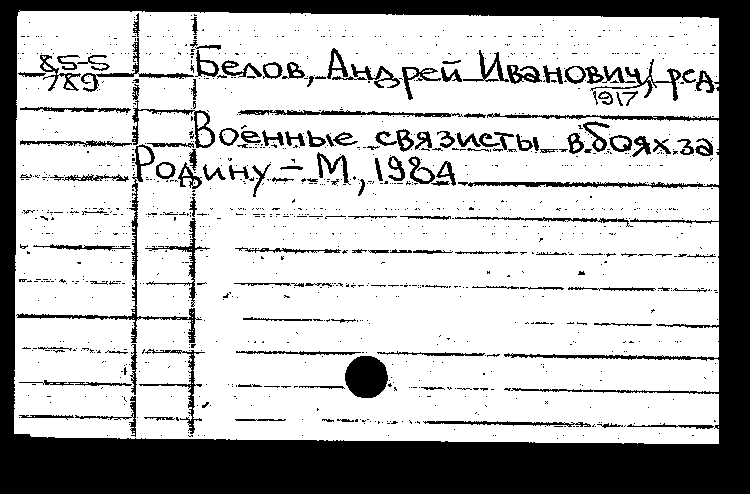 85-5
789
Белов, Андрей Иванович, ред.
1917
Военные связисты в боях за
Родину – М., 1984